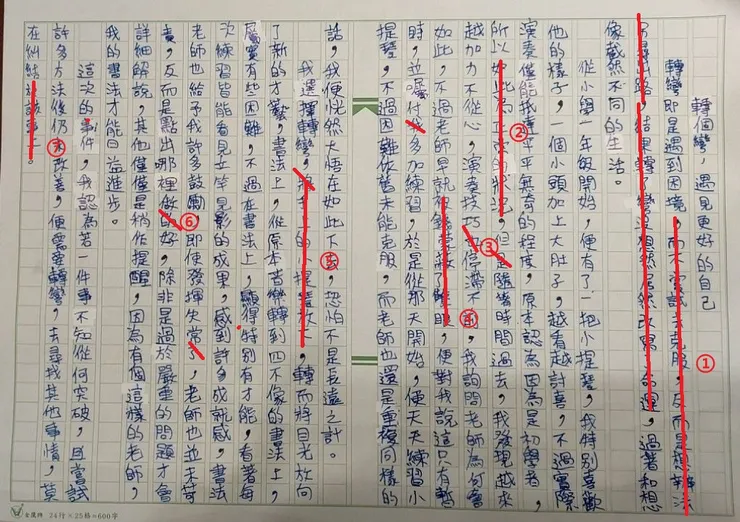 轉個彎，遇見更好的自己
轉彎即是遇到困境，而不嘗試去克服，反而是想辦法
另尋出路，結果轉了彎沒想然居然改寫命運，過著和想
像截然不同的生活。
從小學一年級開始，便有了一把小提琴，我特別喜歡
他的樣子，一個小頭加上大肚子，越看越討喜，不過實際
演奏僅能我達平平無奇的程度，原本認為因為是初學者，
所以如此正常的狀況，但是隨後時間過去，我發現越來
越加力不從心，演奏技巧停滯不前，我詢問老師為何會
如此，不過老師早就，便對我說這只有暫
時，並囑付我多加練習，於是從那天開始，便天天練習小
提琴，不過困難依舊未能克服，而老師也還是重複同樣的
話，我便恍然大悟在如此下去，恐怕不是長遠之計。
我選擇轉彎，將手上的提琴放下，轉而將目光放向
了新的才藝，書法上，從原本音樂轉到四不像的書法上，
屬實有些困難，不過在書法上，顯得特別有才能，看著每
次練習皆能看見立竿見影的成果，感到許多成就感，書法
老師也給予我許多鼓勵，即使發揮失常了，老師也並未苛
責，反而是點出哪裡做的好，除非是過於嚴重的問題才會
詳細解說，其他僅僅是稍作提醒，因為有個這樣的老師，
我的書法才能日益進步。
這次的事件，我認為若一件事不知從何突破，且嘗試
許多方法後仍未改善，便需要轉彎，去尋找其他事情，莫
在糾結於該事上。
①
②
③
④
⑤
⑥
⑦
24行×25格=600字